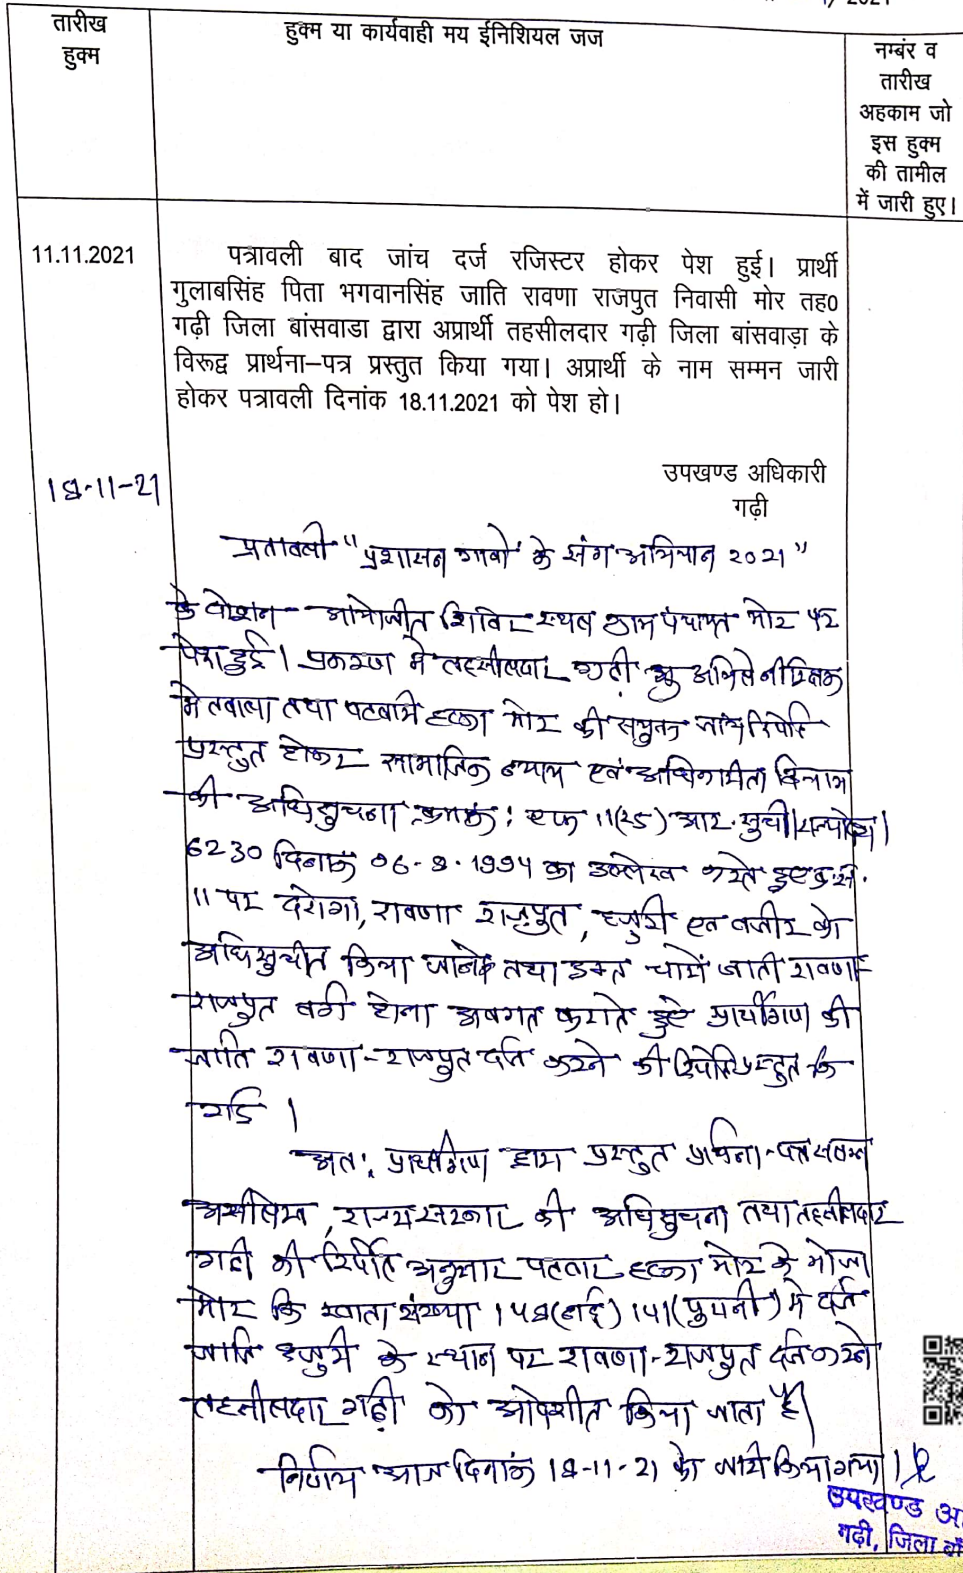 / 2021
तारीख
हुक्म
हुक्म या कार्यवाही मय ईनिशियल जज
नम्बंर व
तारीख
अहकाम जो
इस हुक्म
की तामील
में जारी हुए।
11.11.2021
पत्रावली बाद जांच दर्ज रजिस्टर होकर पेश हुई। प्रार्थी
गुलाबसिंह पिता भगवानसिंह जाति रावणा राजपुत निवासी मोर तह०
गढ़ी जिला बांसवाडा द्वारा अप्रार्थी तहसीलदार गढ़ी जिला बांसवाड़ा के
विरूद्व प्रार्थना–पत्र प्रस्तुत किया गया। अप्रार्थी के नाम सम्मन जारी
होकर पत्रावली दिनांक 18.11.2021 को पेश हो।
उपखण्ड अधिकारी
गढ़ी
18-11-21
"प्रशासन गावों के संग अभियान 2021"
शिविर स्थल ग्राम पंचायत मोर पर
पेश हुई। प्रकरण मे तहसीलदार गढ़ी
तथा पटवारी हल्का मोर की सयुक्त जांच रिपोर्ट
प्रस्तुत होकर सामाजिक न्याय एवं
की अधिसुचना क्रमांक: एफ 11(25) आर.
6230 दिनांक 06-8-1994 का उल्लेख करते हुए
11 पर दरोगा, रावणा राजपुत, हजुरी एवं वजीर को
अधिसुचीत किया जाने तथा उक्त चारों जाती रावणा-
राजपुत वर्ग होना अवगत कराते हुऐ प्रार्थीगण की
जाति रावणा-राजपुत दर्ज करने की रिपोर्ट प्रस्तुत कि
गई।
अतः प्रार्थीगण द्वारा प्रस्तुत प्रार्थना-पत्र
राज्य सरकार की अधिसुचना तथा तहसीलदार
गढी की रिर्पोट अनुसार पटवार हल्का मोर के मोजा
मोर कि खाता संख्या 148(नई) 141(पुरानी) मे दर्ज
जाति हजुरी के स्थान पर रावणा-राजपुत दर्ज करने
तहसीलदार गढ़ी को किया जाता है।
निर्णय आज दिनांक 18-11-21 को जारी किया गया।
उपखण्ड अ
गढ़ी, जिला बाँ